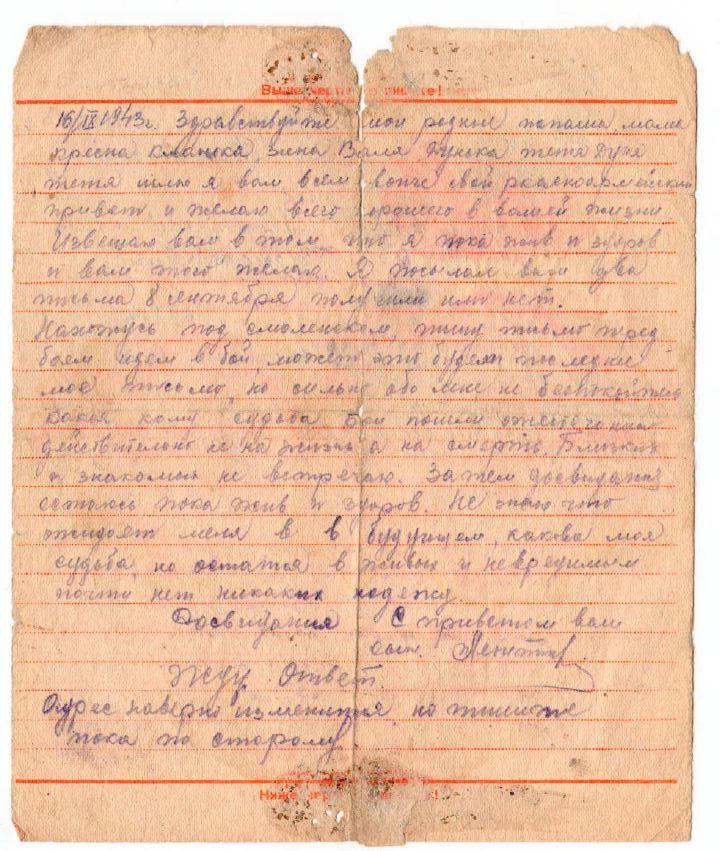 Выше черты не пишите!
16/IX 1943г. Здравствуйте мои родные папаша, мама
кресна Кланька, Валя Дунька тетя Дуня
тетя шлю я вам всем вопче свой красноармейский
привет и желаю всего хорошего в вашей жизни
Извещаю вам в том что я пока жив и здоров
и вам того желаю. Я посылал вам два
письма 8 сентября получили или нет.
Нахожусь под смоленском, пишу письмо перед
боем идем в бой, может это будет последнее
мое письмо, но сильно обо мне не беспокойтесь
какая кому судьба бои пошли
действительно не на жизнь а на смерть. Близких
и знакомых не встречаю. Затем досвидания
остаюсь пока жив и здоров. Не знаю что
ожидает меня в в будующем, какова моя
судьба, но остатся в живых и невредимым
почти нет никаких надежд
Досвидания С приветом ваш
сын.
Жду Ответ.
Адрес наверно изменится, но пишите
пока по старому
Ниже черты не пишите!